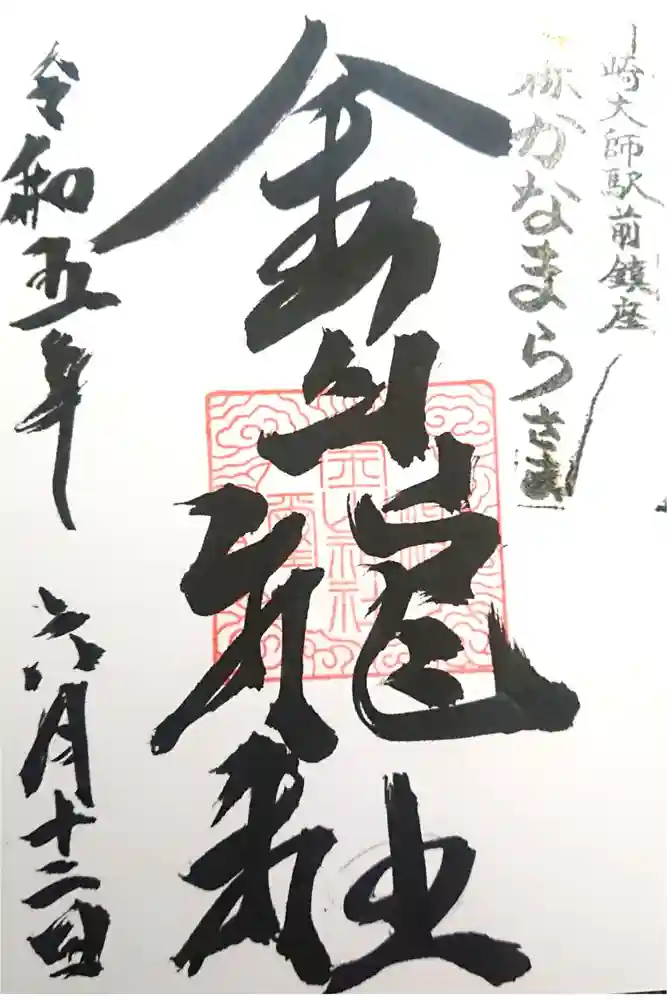 崎大師駅前鎮座
称かなまらさま
金山龍社
令和五年 六月十二日